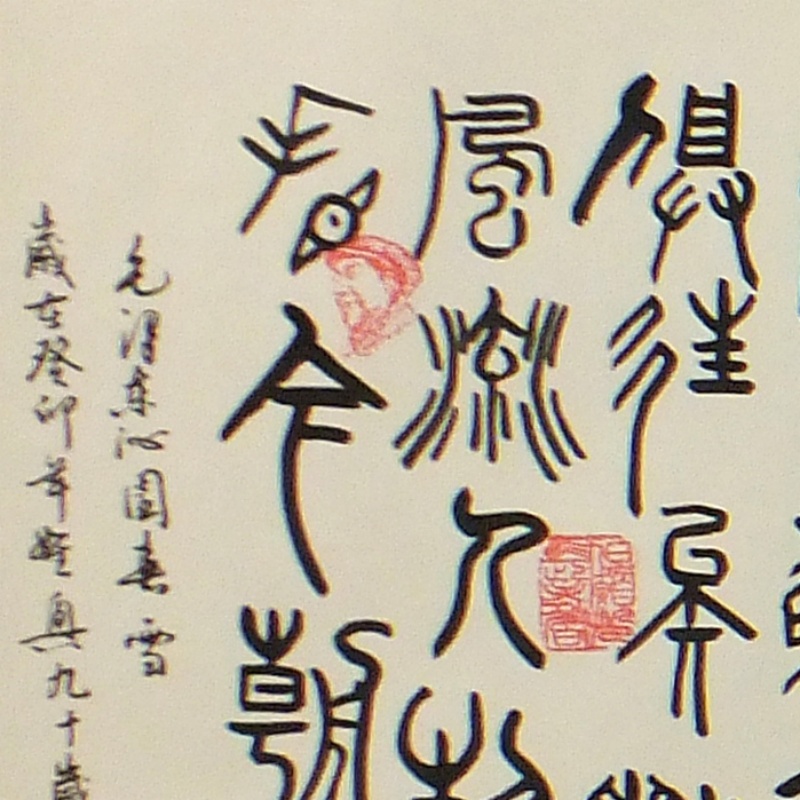 俱往矣
風流人物
看今朝
毛澤東沁園春雪
歲在癸卯年真九十歲